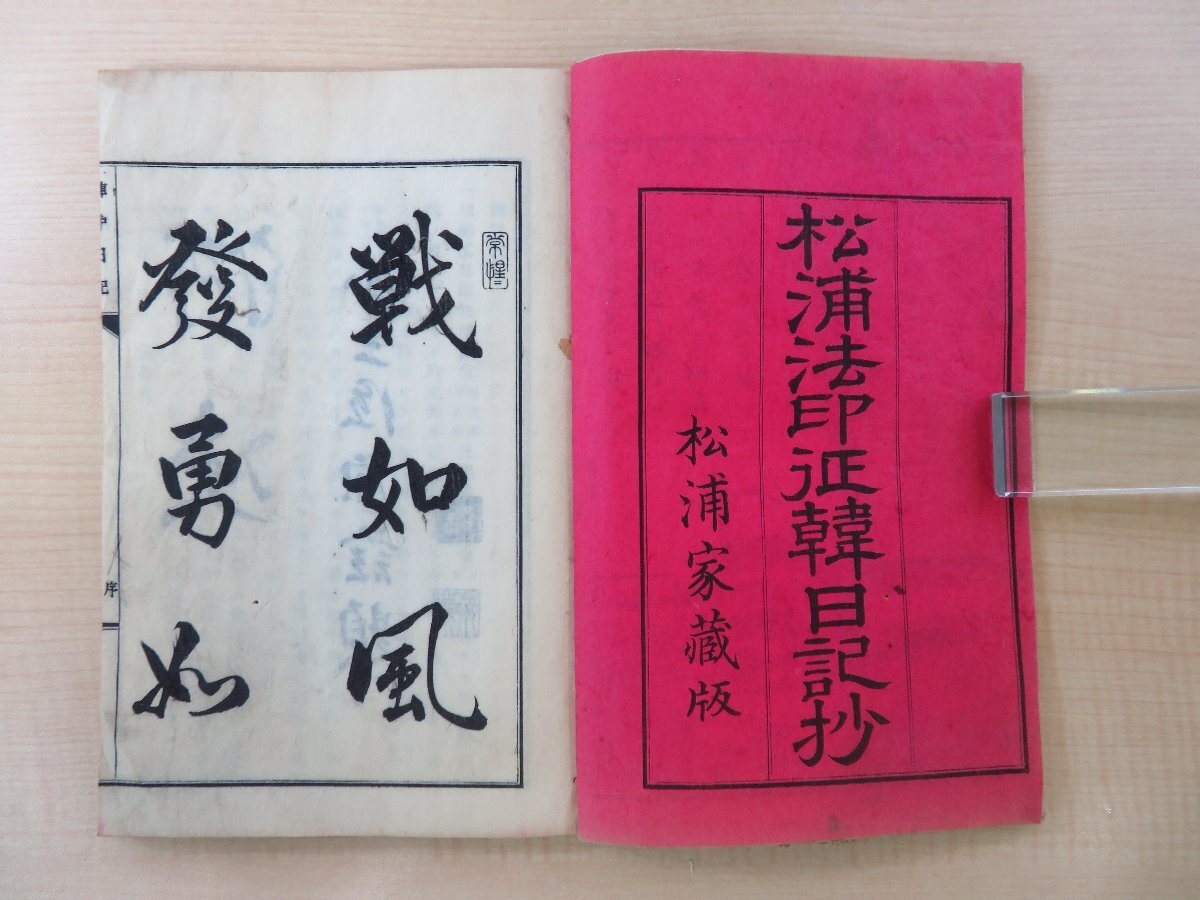 松浦法印征韓日記抄
松浦家藏版
戰如風
發勇如
陣中日記
序